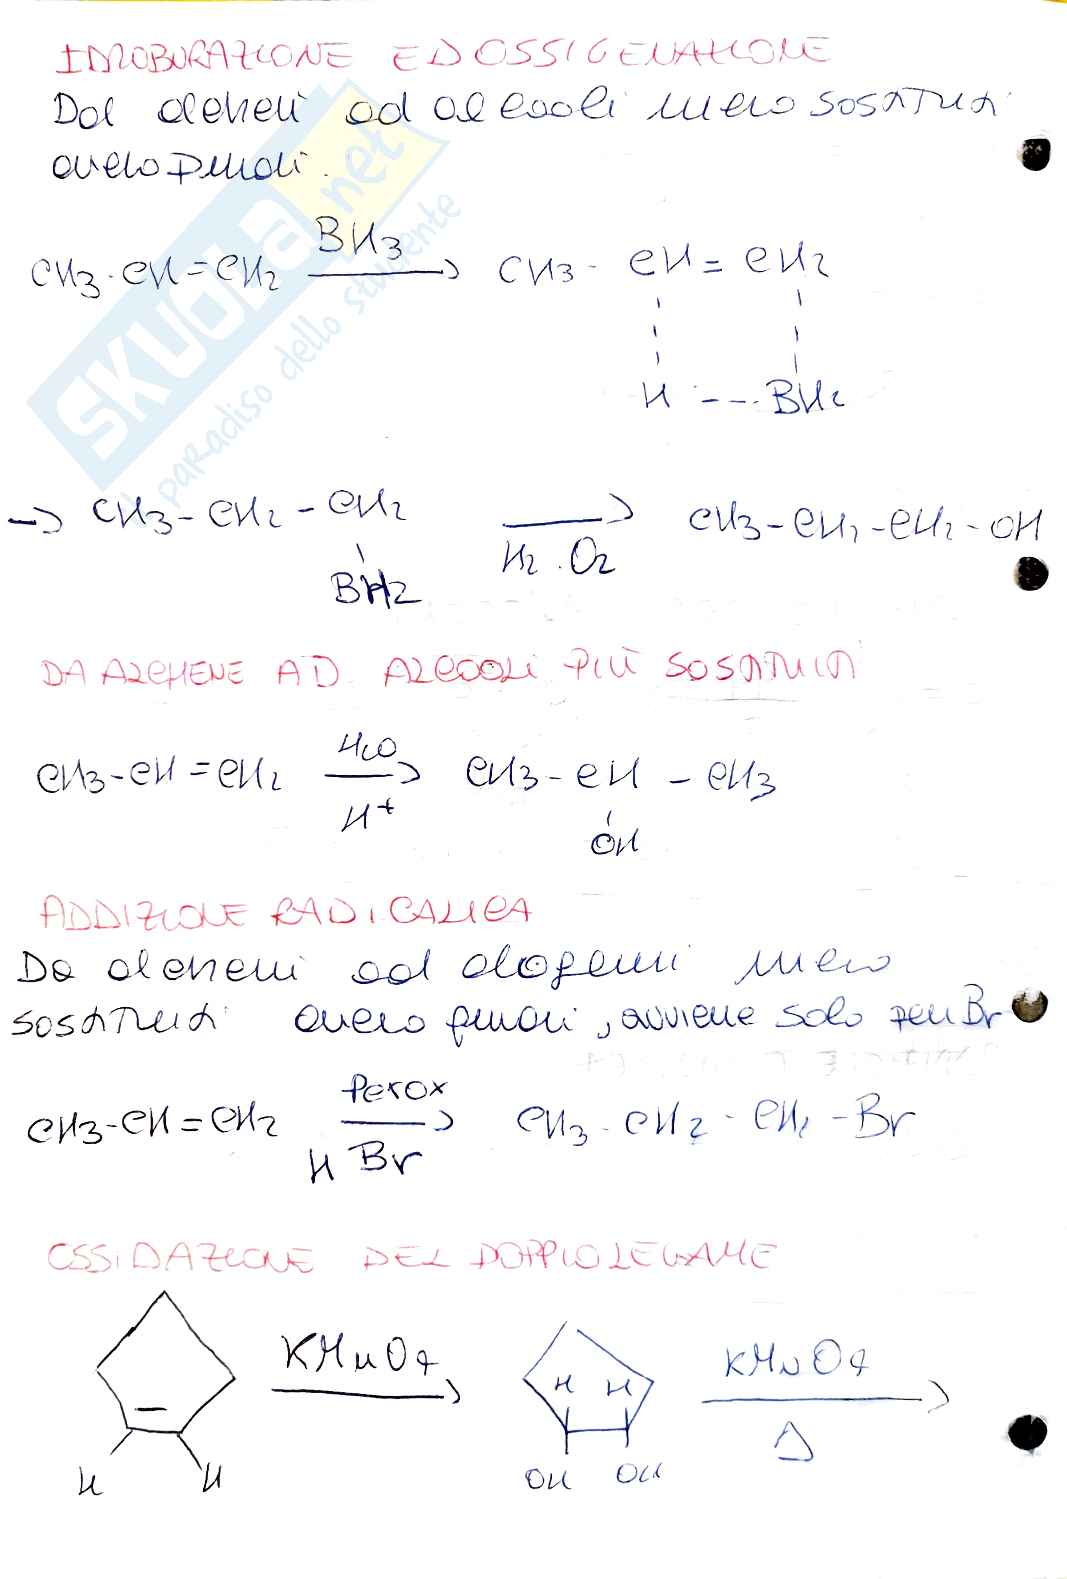 IDROBORAZIONE ED OSSIGENAZIONE
Dal alcheni ad alcooli meno sostituiti
ovvero primari.
CH3-CH=CH2 BH3 → CH3-CH=CH2
H---BH2
→ CH3-CH2-CH2 → CH3-CH2-CH2-OH
BH2 H2.O2
DA ALCHENE AD ALCOOLI PIÙ SOSTITUITI
CH3-CH=CH2 H2O → CH3-CH-CH3
H+ OH
ADDIZIONE RADICALICA
Da alcheni ad alogeni meno
sostituiti ovvero primari, avviene solo per Br
CH3-CH=CH2 Perox → CH3-CH2-CH2-Br
H Br
OSSIDAZIONE DEL DOPPIO LEGAME
KMnO4 → KMnO4 →
H H
Δ
H H OH OH
SKUOLA.net
il paradiso dello studente